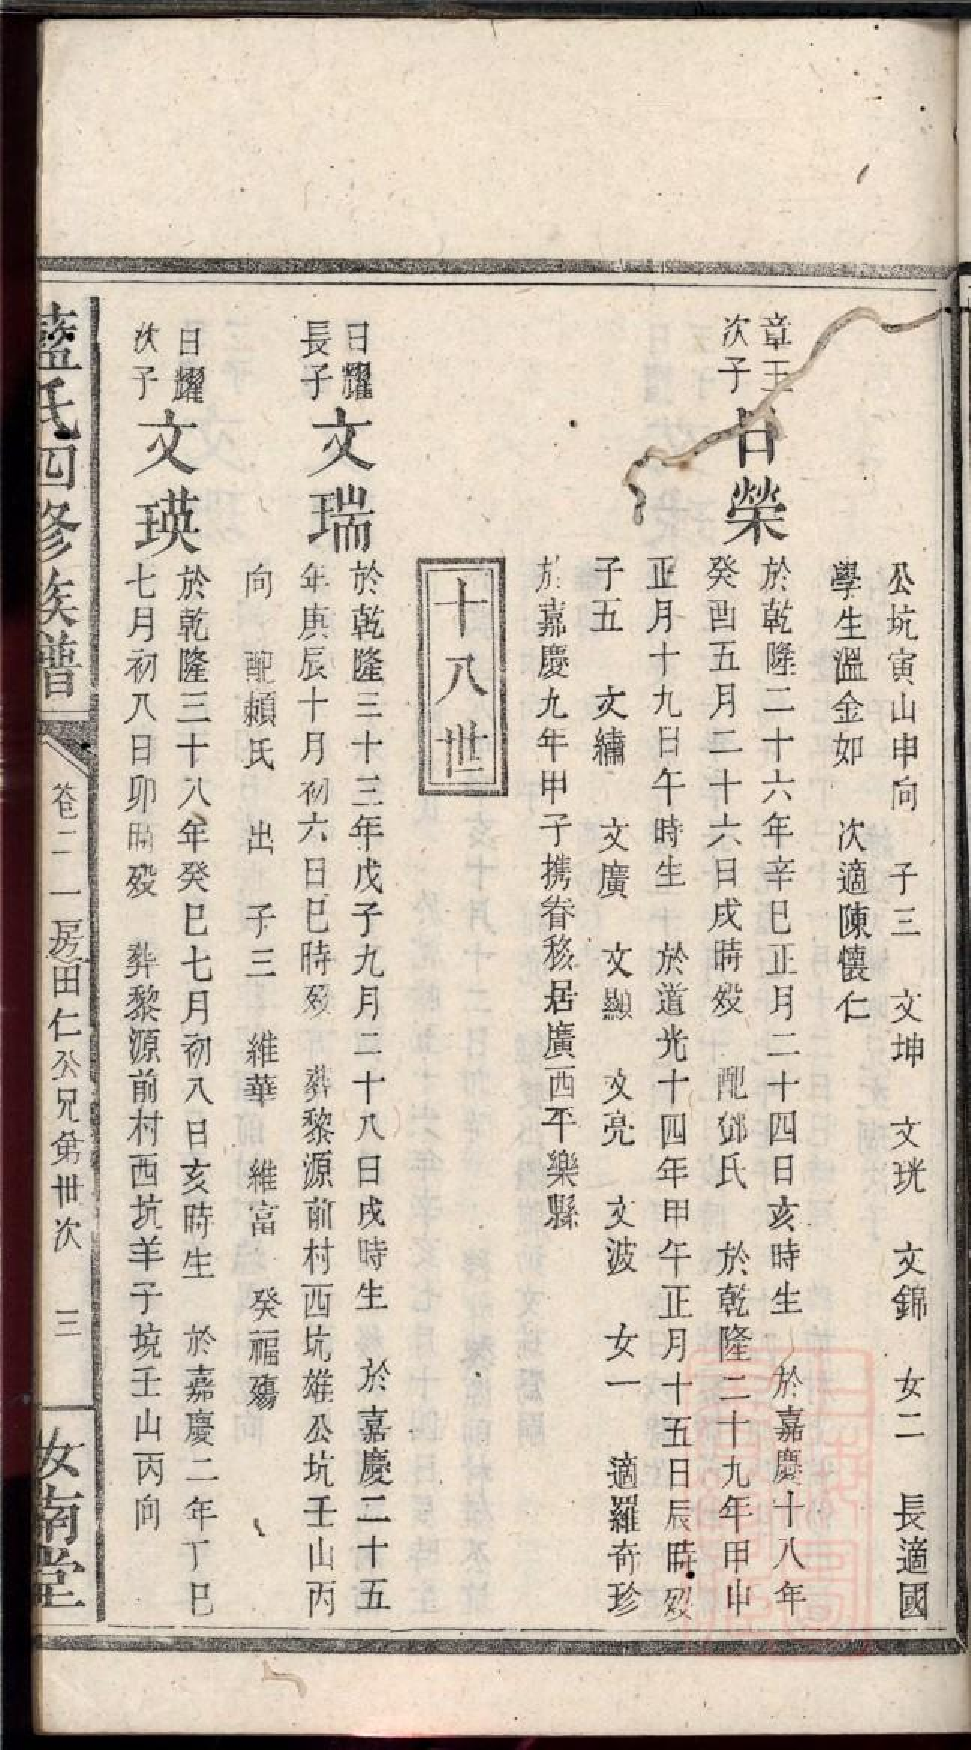 公坑寅山申向　子三　文坤　文珖　文錦　女二　長適國
學生溫金如　次適陳懷仁
章玉
次子
日榮
於乾隆二十六年辛巳正月二十四日亥時生　於嘉慶十八年
癸酉五月二十六日戌時殁　配鄧氏　於乾隆二十九年甲申
正月十九日午時生　於道光十四年甲午正月十五日辰時殁
子五　文繡　文廣　文顯　文亮　文波　女一　適羅奇珍
於嘉慶九年甲子携眷移居廣西平樂縣
十八世
日耀
長子
文瑞
於乾隆三十三年戊子九月二十八日戌時生　於嘉慶二十五
年庚辰十月初六日巳時殁　葬黎源前村西坑雄公坑壬山丙
向　配賴氏　出　子三　維華　維富　癸福殤
日耀
次子
文瑛
於乾隆三十八年癸巳七月初八日亥時生　於嘉慶二年丁巳
七月初八日卯時殁　葬黎源前村西坑羊子境壬山丙向
藍氏四修族譜
卷二一房田仁公兄弟世次　三
汝南堂